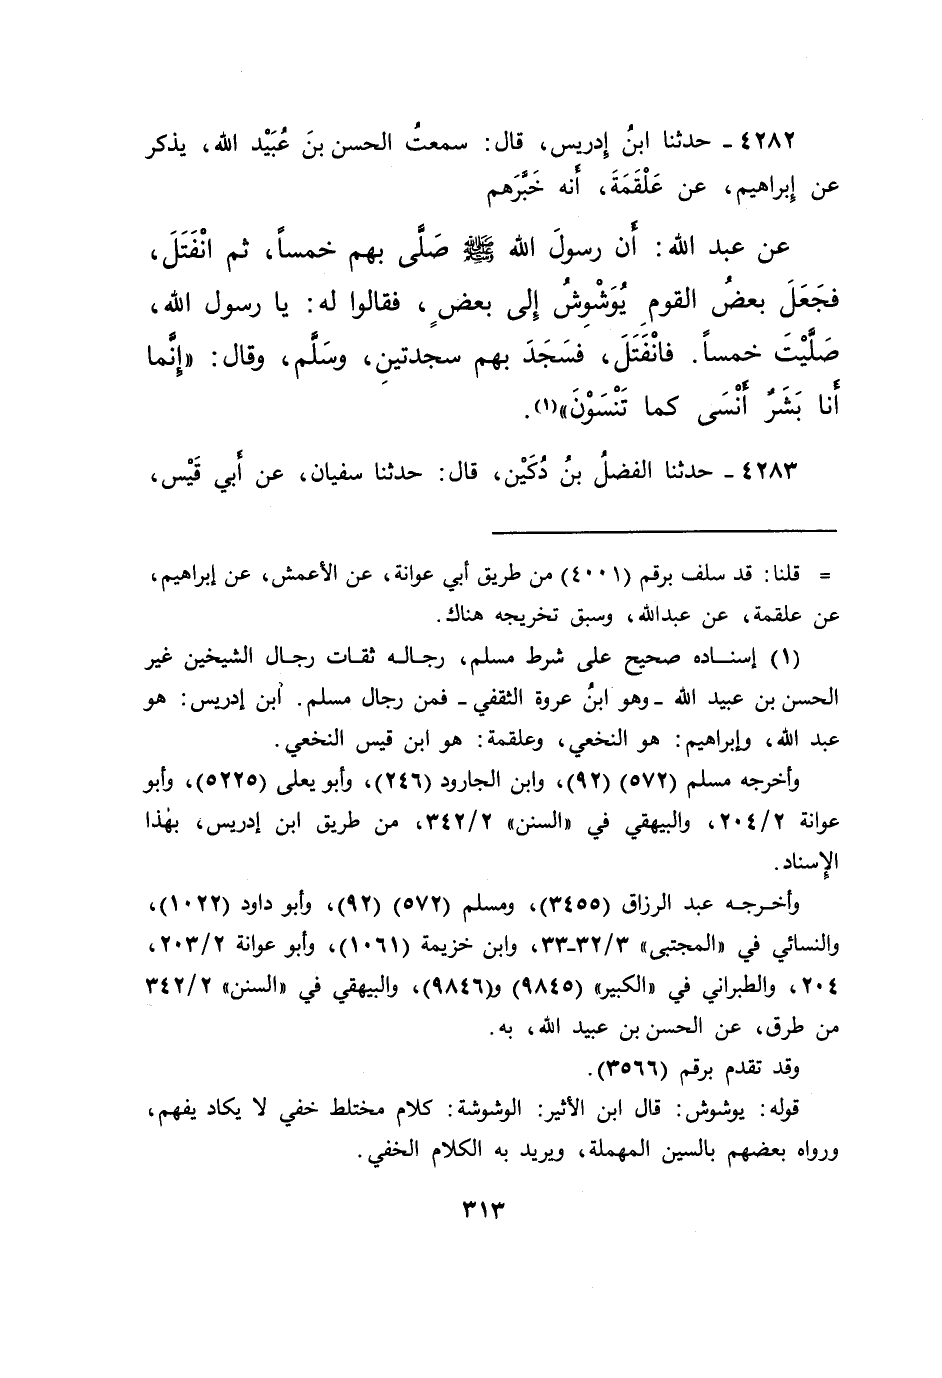 ٤٢٨٢ ـ حدثنا ابنُ إدريس، قال: سمعتُ الحسن بنَ عُبَيْد الله، يذكر
عن إبراهيم، عن عَلْقَمَةَ، أنه خَبَّرَهم
عن عبد الله: أَن رسولَ الله ﷺ صَلَّى بهم خمساً، ثم انْفَتَلَ،
فجَعَلَ بعضُ القومِ يُوَشْوِشُ إلى بعضٍ، فقالوا له: يا رسول الله،
صَلَّيْتَ خمساً. فانْفَتَلَ، فسَجَدَ بهم سجدتينِ، وسَلَّم، وقال: «إِنَّما
أَنا بَشَرٌ أَنْسَى كما تَنْسَوْنَ»(١).
٤٢٨٣ ـ حدثنا الفضلُ بنُ دُكَيْن، قال: حدثنا سفيان، عن أَبي قَيْس،
= قلنا: قد سلف برقم (٤٠٠١) من طريق أبي عوانة، عن الأعمش، عن إبراهيم،
عن علقمة، عن عبدالله، وسبق تخريجه هناك.
(١) إسناده صحيح على شرط مسلم، رجاله ثقات رجال الشيخين غير
الحسن بن عبيد الله ـ وهو ابنُ عروة الثقفي ـ فمن رجال مسلم. ابن إدريس: هو
عبد الله، وإبراهيم: هو النخعي، وعلقمة: هو ابن قيس النخعي.
وأخرجه مسلم (٥٧٢) (٩٢)، وابن الجارود (٢٤٦)، وأبو يعلى (٥٢٢٥)، وأبو
عوانة ٢٠٤/٢، والبيهقي في «السنن» ٣٤٢/٢، من طريق ابن إدريس، بهٰذا
الإِسناد.
وأخرجه عبد الرزاق (٣٤٥٥)، ومسلم (٥٧٢) (٩٢)، وأبو داود (١٠٢٢)،
والنسائي في «المجتبى» ٣٢/٣-٣٣، وابن خزيمة (١٠٦١)، وأبو عوانة ٢٠٣/٢،
٢٠٤، والطبراني في «الكبير» (٩٨٤٥) و(٩٨٤٦)، والبيهقي في «السنن» ٣٤٢/٢
من طرق، عن الحسن بن عبيد الله، به.
وقد تقدم برقم (٣٥٦٦).
قوله: يوشوش: قال ابن الأثير: الوشوشة: كلام مختلط خفي لا يكاد يفهم،
ورواه بعضهم بالسين المهملة، ويريد به الكلام الخفي.
٣١٣